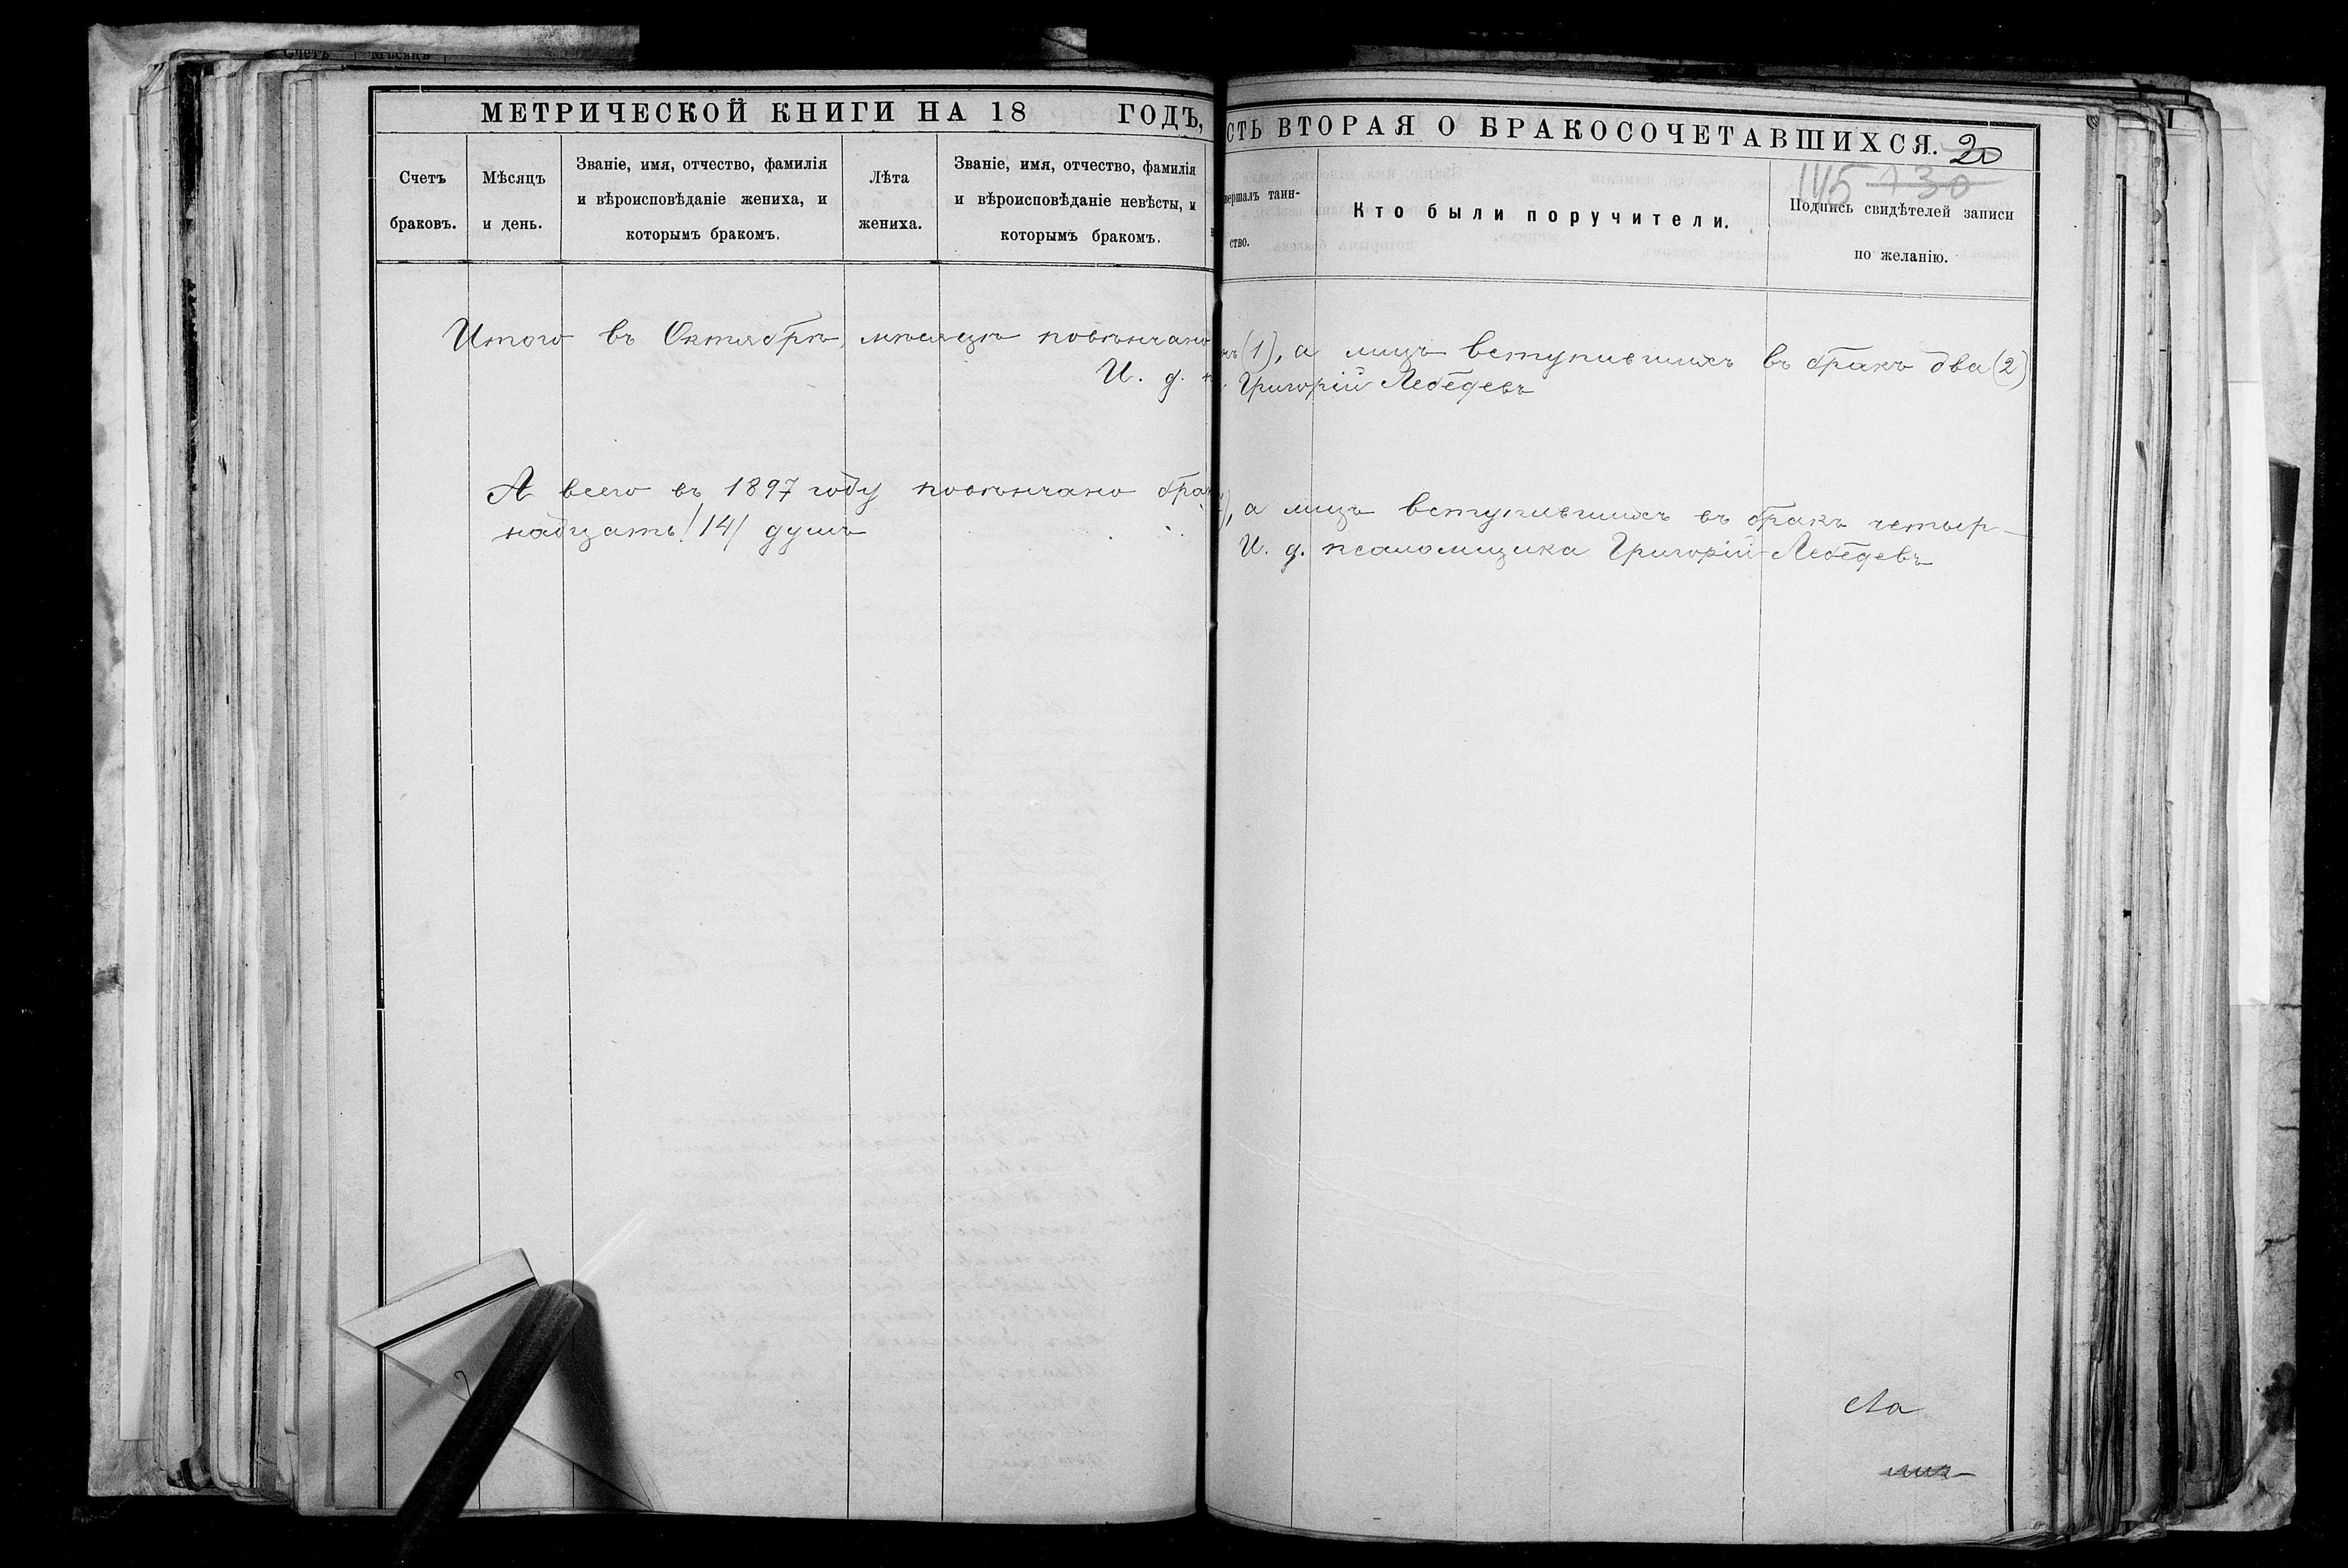 Счетъ Мѣсяцъ
МЕТРИЧЕСКОЙ КНИГИ НА 18 ГОДЪ,
Счетъ
браковъ.
Мѣсяцъ
и день.
Званіе, имя, отчество, фамилія
и вѣроисповѣданіе жениха, и
которымъ бракомъ.
Лѣта
жениха.
Званіе, имя, отчество, фамилія
и вѣроисповѣданіе невѣсты, и
которымъ бракомъ.
Итого въ Октябрѣ мѣсяцѣ повѣнчано
И. д.
А всего въ 1897 году повѣнчано брак
надцать /14/ душъ
СТЬ ВТОРАЯ О БРАКОСОЧЕТАВШИХСЯ. 20
145 730
вершалъ таин-
ство.
Кто были поручители.
Подпись свидѣтелей записи
по желанію.
(1), а лицъ вступившихъ въ бракъ два (2)
Григорій Лебедевъ
), а лицъ вступившихъ въ бракъ четыр-
И. д. псаломщика Григорій Лебедевъ